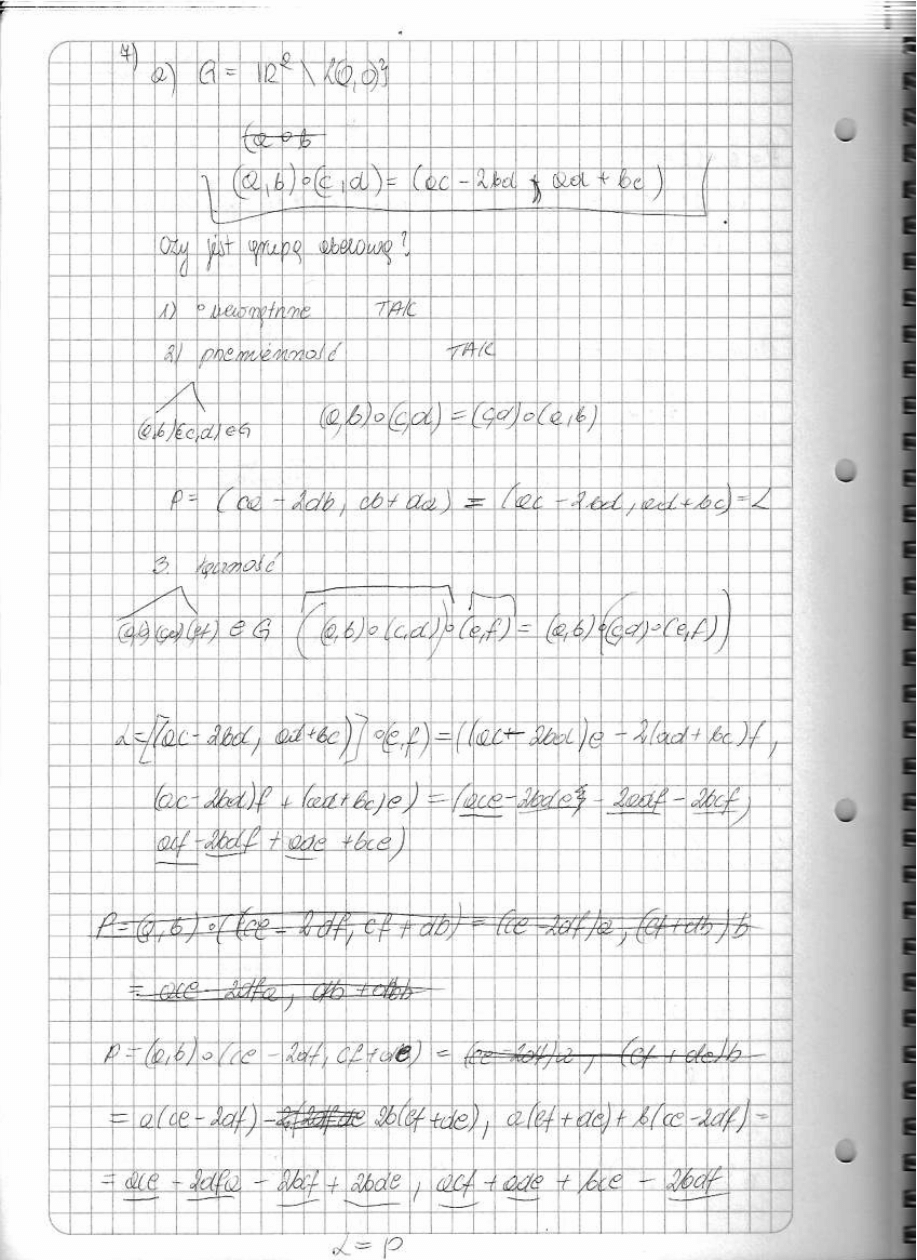 7)
a) G = ℝ² \ {(0,0)}
(a ∘ b
(a,b)∘(c,d) = (ac - 2bd, ad + bc)
Czy jest grupą abelową?
1) ∘ wewnętrzne TAK
2) przemienność TAK
(a,b)(c,d)∈G (a,b)∘(c,d) = (c,d)∘(a,b)
P = (ca - 2db, cb + da) = (ac - 2bd, ad + bc) = L
3. łączność
(a,b)(c,d)(e,f) ∈ G ((a,b)∘(c,d))∘(e,f) = (a,b)∘((c,d)∘(e,f))
L = [(ac - 2bd, ad + bc)]∘(e,f) = ((ac - 2bd)e - 2(ad + bc)f,
(ac - 2bd)f + (ad + bc)e) = (ace - 2bde - 2adf - 2bcf,
acf - 2bdf + ade + bce)
P = (a,b)∘((ce - 2df, cf + db) = (ce - 2df)a, (cf + db)b
= ace - 2dfa,
P = (a,b)∘(ce - 2df, cf + de) = (ce - 2df)a, (cf + de)b
= a(ce - 2df) - 2b(cf + de), a(cf + de) + b(ce - 2df) =
= ace - 2dfa - 2bcf + 2bde, acf + ade + bce - 2bdf
L = P